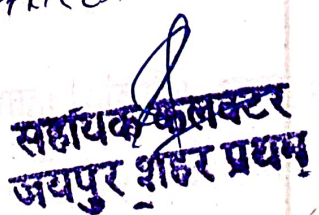 सहायक कलक्टर
जयपुर शहर प्रथम्